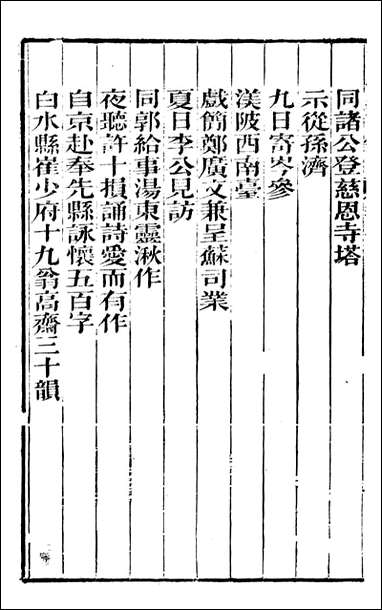 同諸公登慈恩寺塔
示從孫濟
九日寄岑參
渼陂西南臺
戲簡鄭廣文兼呈蘇司業
夏日李公見訪
同郭給事湯東靈湫作
夜聽許十損誦詩愛而有作
自京赴奉先縣詠懷五百字
白水縣崔少府十九翁高齋三十韻